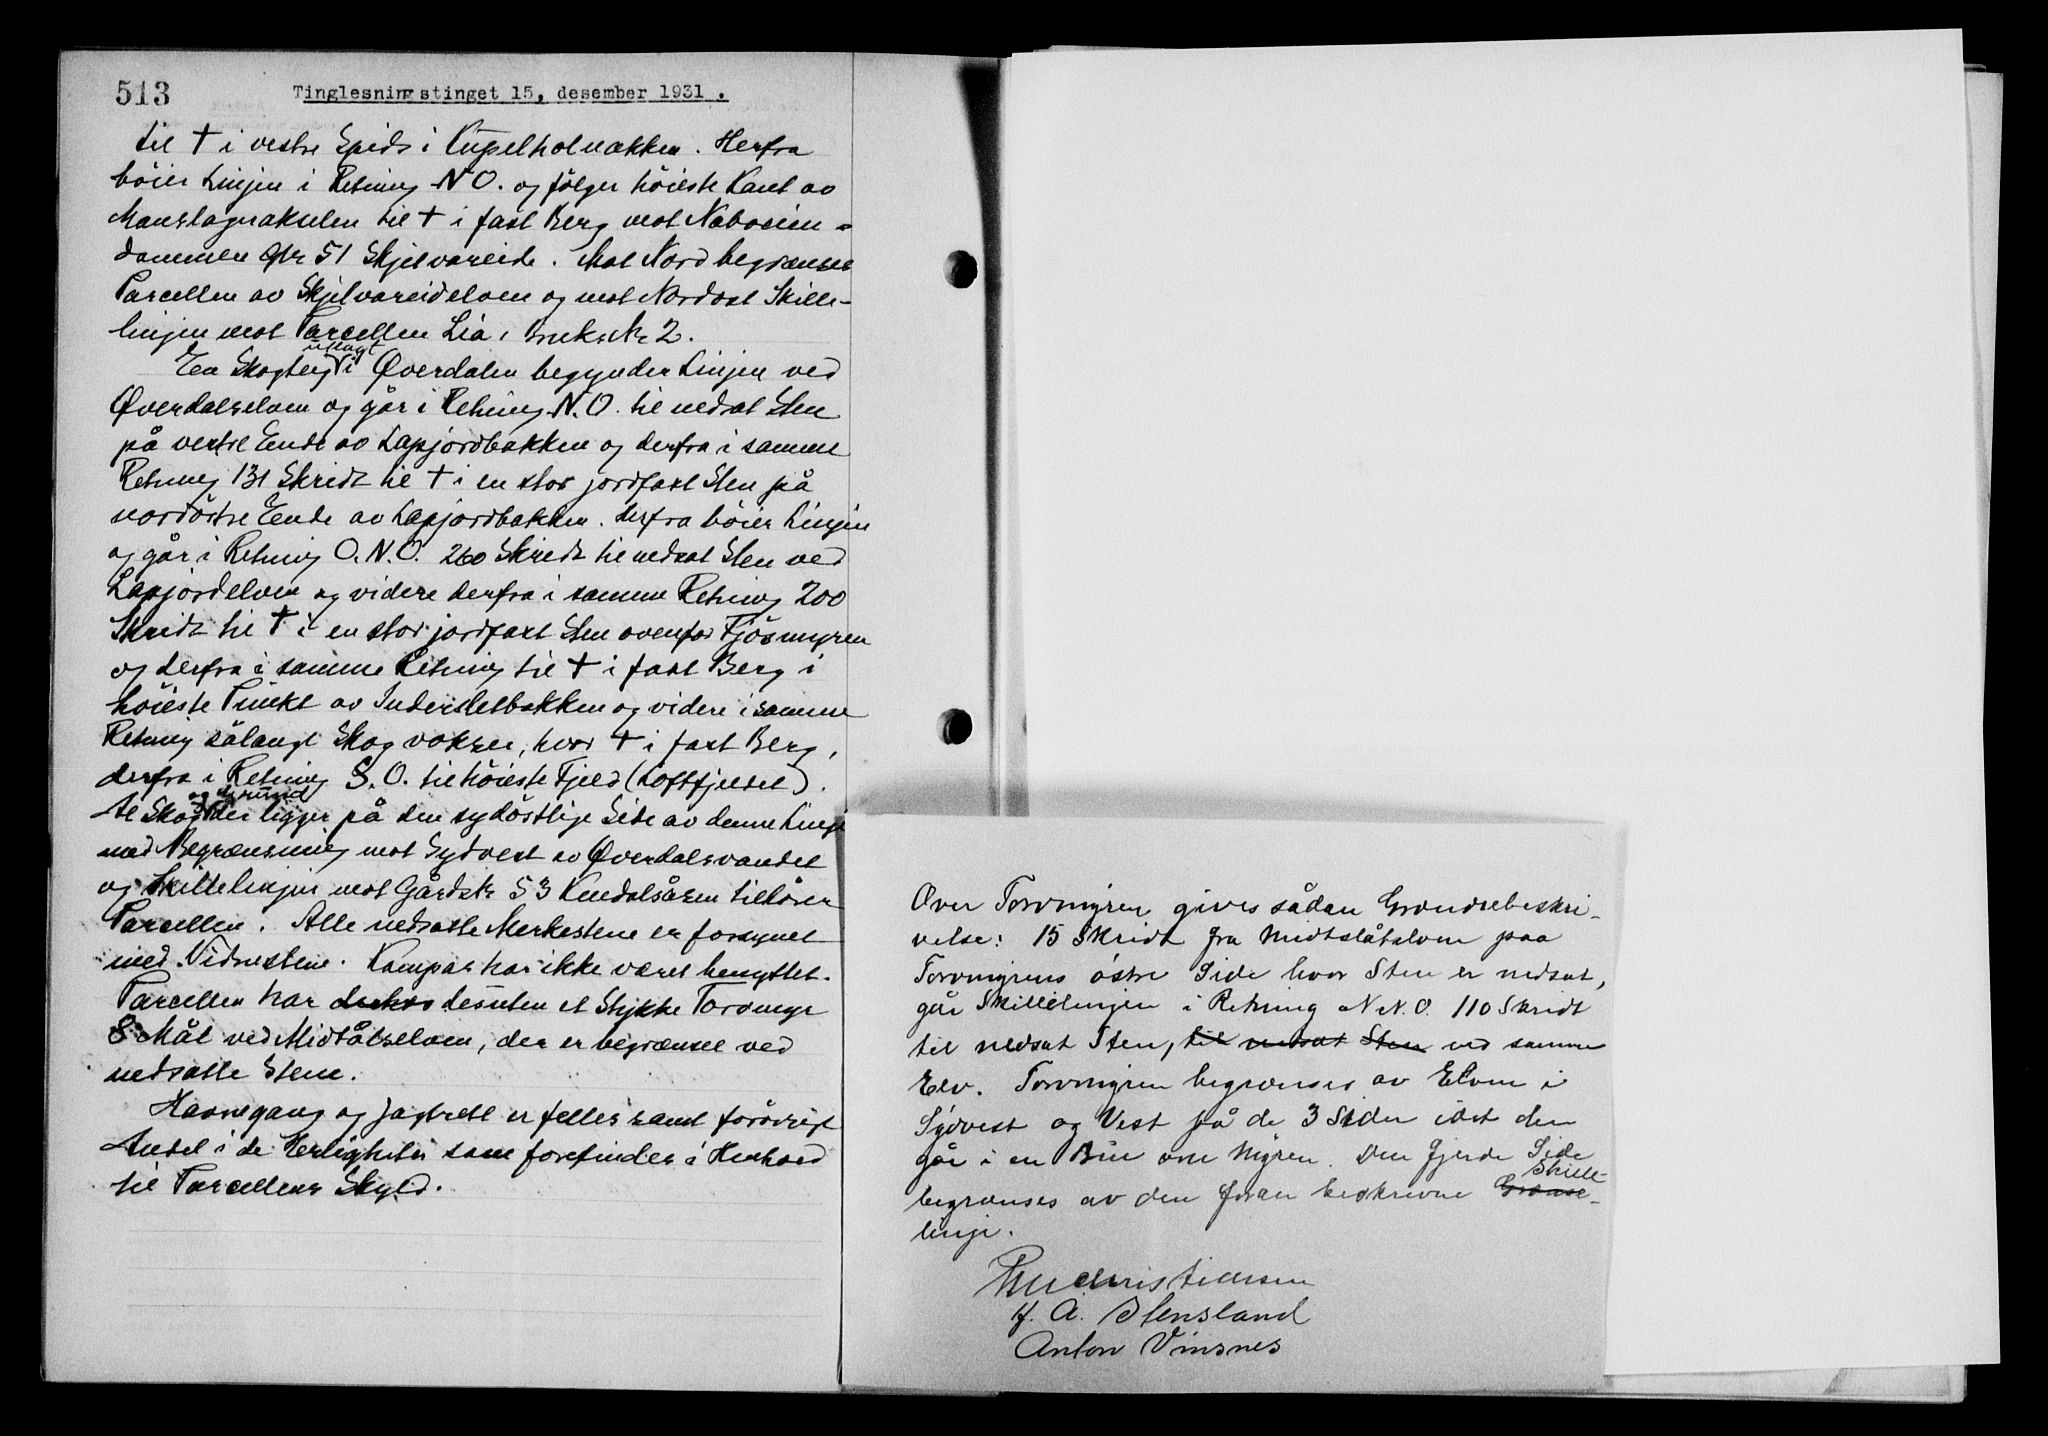 513
Tinglesningstinget 15, desember 1931.
til † i vestre Spids i Kupelholnakken. Herfra
böier Linjen i Retning N O. og fölger höieste Kant av
til † i fast Berg mot Naboeien-
dommen Gnr 51 Skjelvareide. Mot Nord begrænses
Parcellen av Skjelvareidelven og mot Nordost Skille-
linjen mot Parcellen Lia, Bruks Nr 2.
utlagt
En Skogteig i Øverdalen begynder Linjen ved
Øverdalselven og går i Retning N.O. til nedsat Sten
på vestre Ende av Lapjordbakken og derfra i samme
Retning 131 Skridt til † i en stor jordfast Sten på
nordöstre Ende av Lapjordbakken. Derfra böier Linjen
og går i Retning O.N.O. 260 Skridt til nedsat Sten ved
Lapjordelven og videre derfra i samme Retning 200
Skridt til † i en stor jordfast Sten ovenfor Fjösmyren
og derfra i samme Retning til † i fast Berg i
höieste Punkt av Indersletbakken og videre i samme
Retning sålangt Skog vokser, hvor † i fast Berg,
derfra i Retning S.O. til höieste Fjeld (Loftfjeldet).
og Grund
At Skog der ligger på den sydöstlige Side av denne Linje
med Begrænsning mot Sydvest av Øverdalsvandet
og Skillelinjen mot Gårdsnr 53 tilhörer
Parcellen. Alle nedsatte Merkestene er forsynet
med Vidnestene. Kompas har ikke været benyttet.
Parcellen har desuten et Stykke Torvmyr
8 Mål ved Midtåtselven, der er begrænset ved
nedsatte Stene.
Havnegang og Jagtrett er felles samt forövrigt
Andel i de Herligheter som forefindes i Henhold
til Parcellens Skyld.
Over Torvmyren gives sådan Grændsebeskri-
velse: 15 Skridt fra Midtslåtelven paa
Torvmyrens östre Side hvor Sten er nedsat,
går Skillelinjen i Retning N.N.O. 110 Skridt
til nedsat Sten, til nedsat Sten ved samme
Elv. Torvmyren begrænses av Elven i
Sydvest og Vest på de 3 Sider idet den
går i en Bue om Myren. Den fjerde Side
Skille-
begrænses av den foran beskrevne Grænse-
linje.
Christensen
J. A. Stensland
Anton Vinsnes